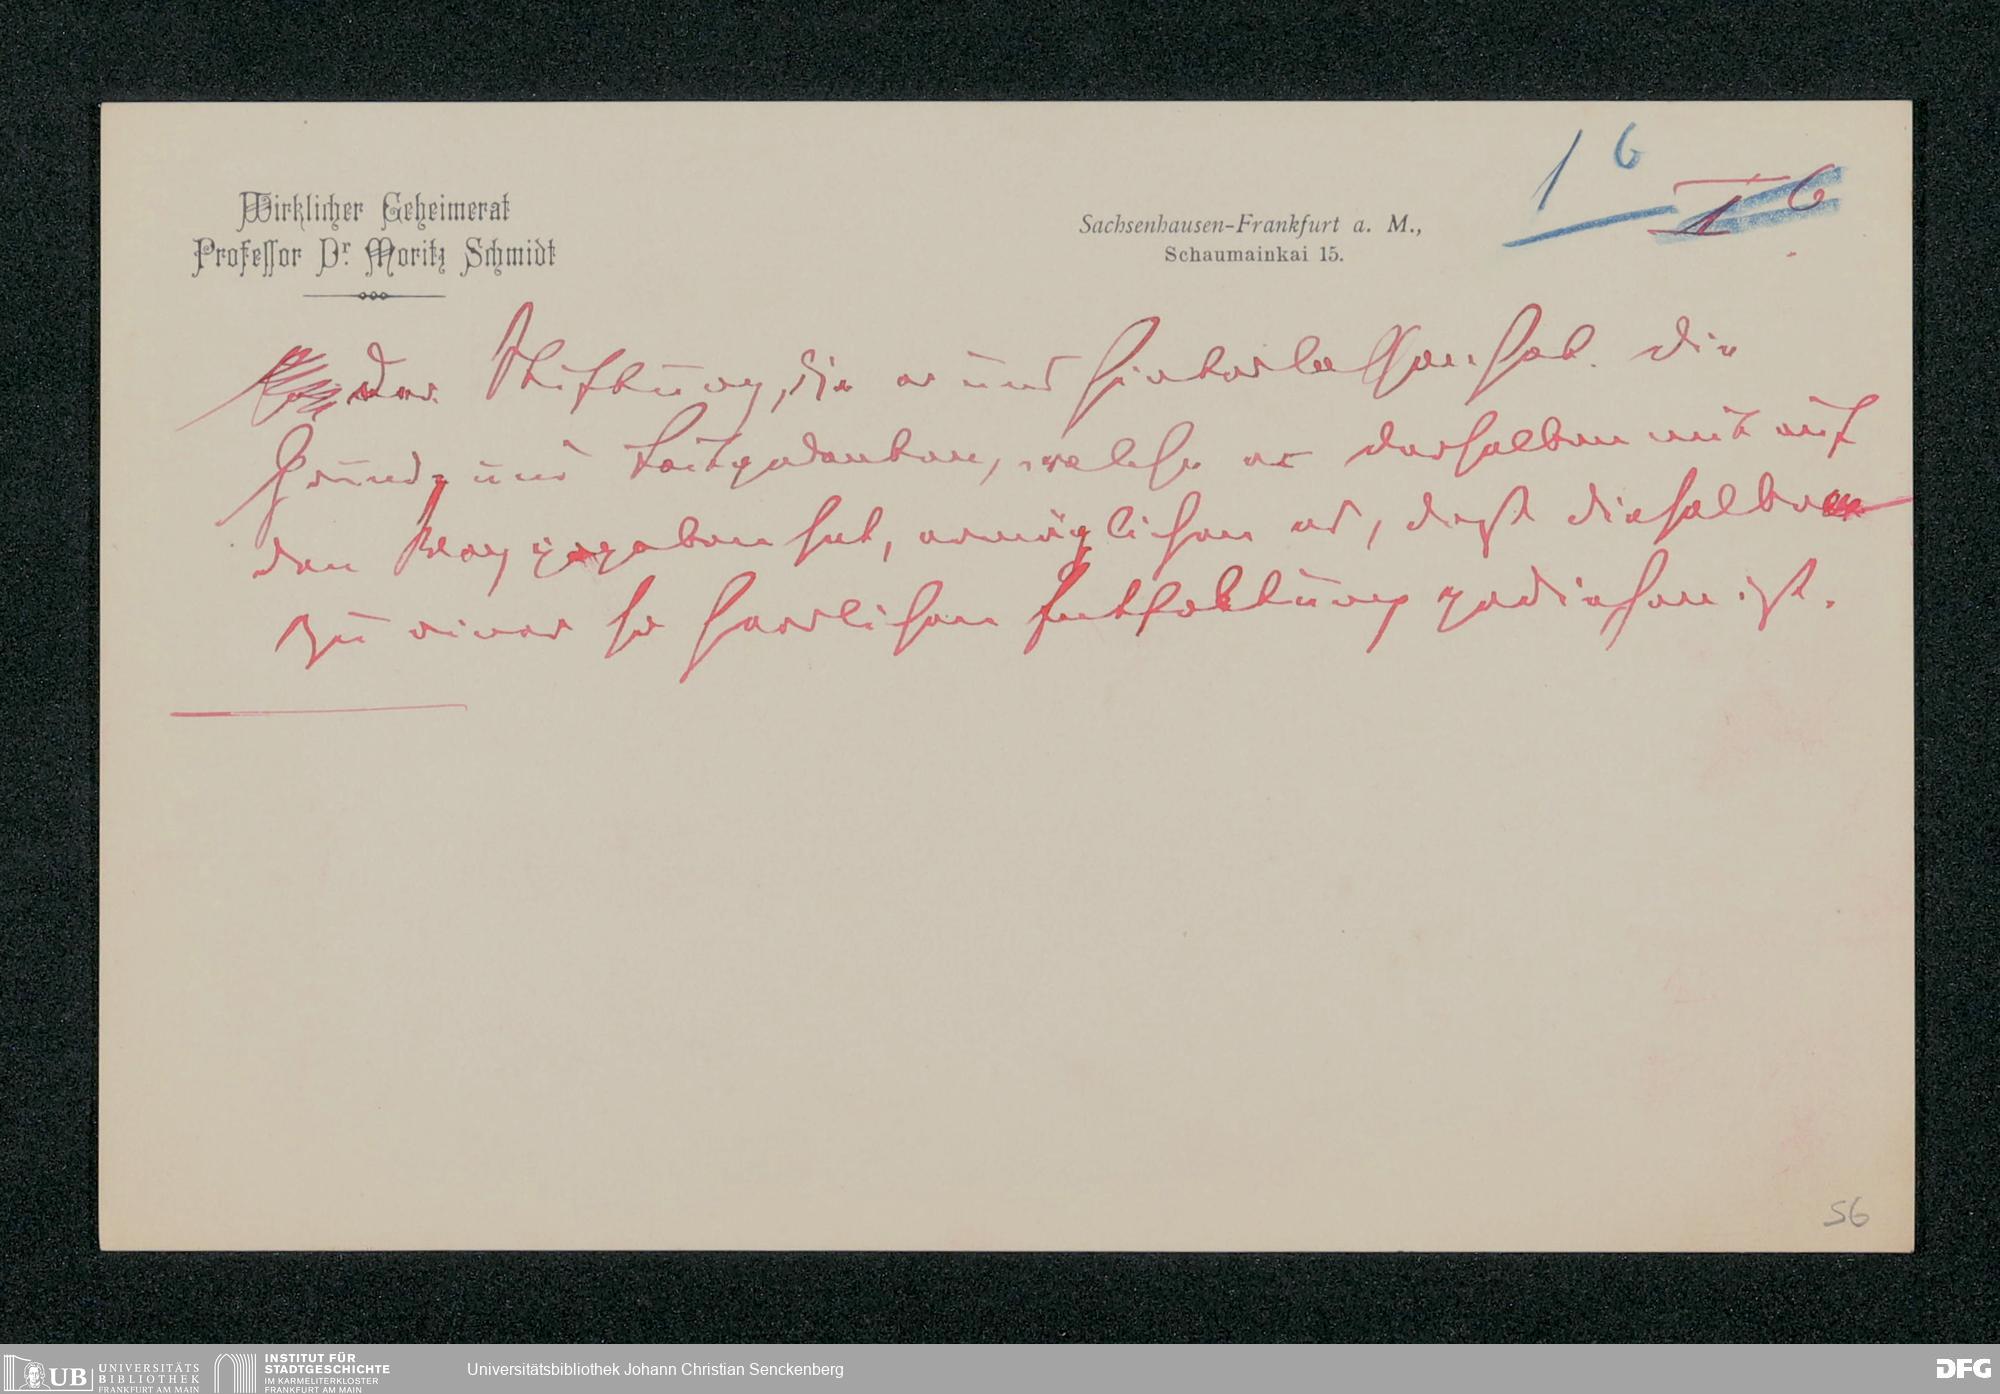 Wirklicher Geheimerat
Professor Dr. Moritz Schmidt
Sachsenhausen-Frankfurt a. M.,
Schaumainkai 15.
1 6
1 6
der Stiftung, die er uns hinterlassen hat. Die
Grund- und Leitgedanken, welche er derselben mit auf
den Weg gegeben hat, ermöglichen es, daß dieselbe
zu einer so herrlichen Entfaltung gediehen ist.
56
UB UNIVERSITÄTS
BIBLIOTHEK
FRANKFURT AM MAIN
INSTITUT FÜR
STADTGESCHICHTE
IM KARMELITERKLOSTER
FRANKFURT AM MAIN
Universitätsbibliothek Johann Christian Senckenberg
DFG